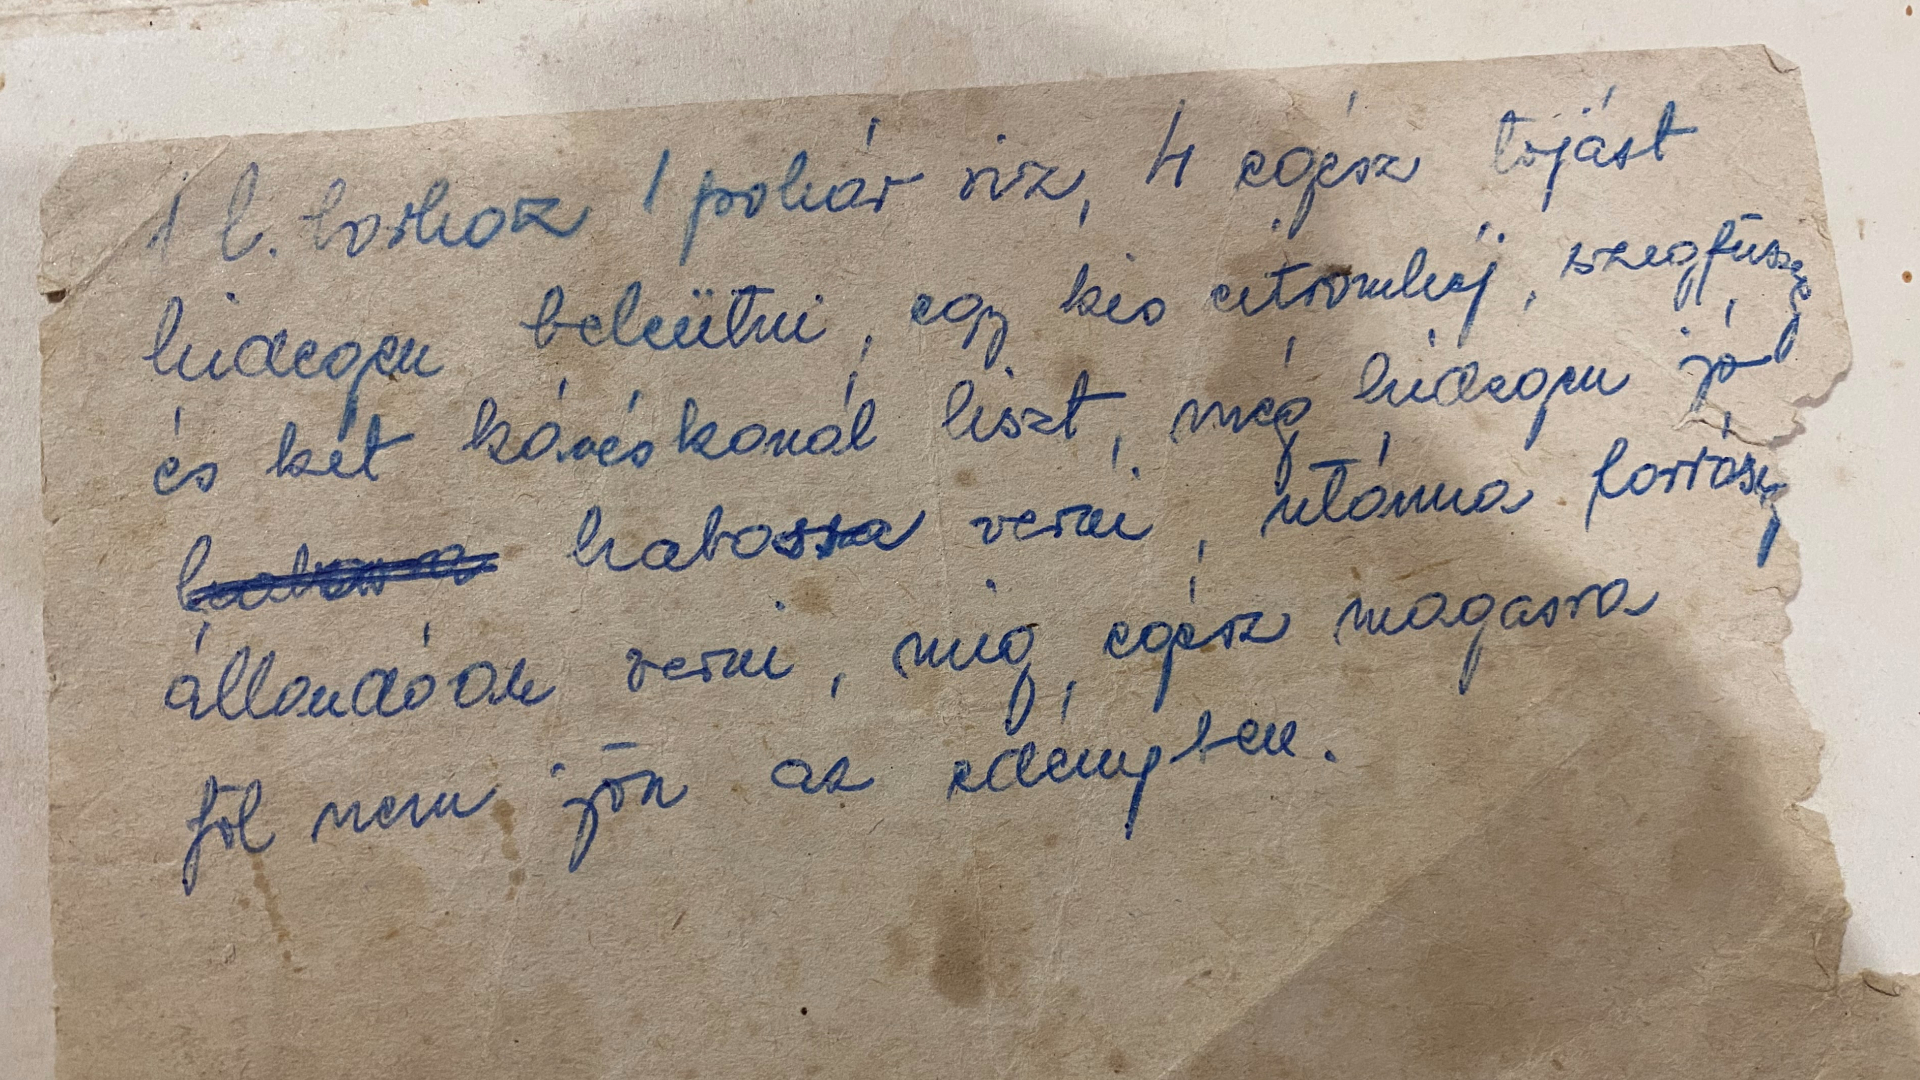 1 l. borhoz 1 pohár viz, 4 egész tojást
hidegen beleütni, egy kis citromhéj, szegfüszeg
és két kávéskanál liszt, még hidegen jó
habossa verni, utánna forrásig
állandóan verni, mig egész magasra
föl nem jön az edényben.